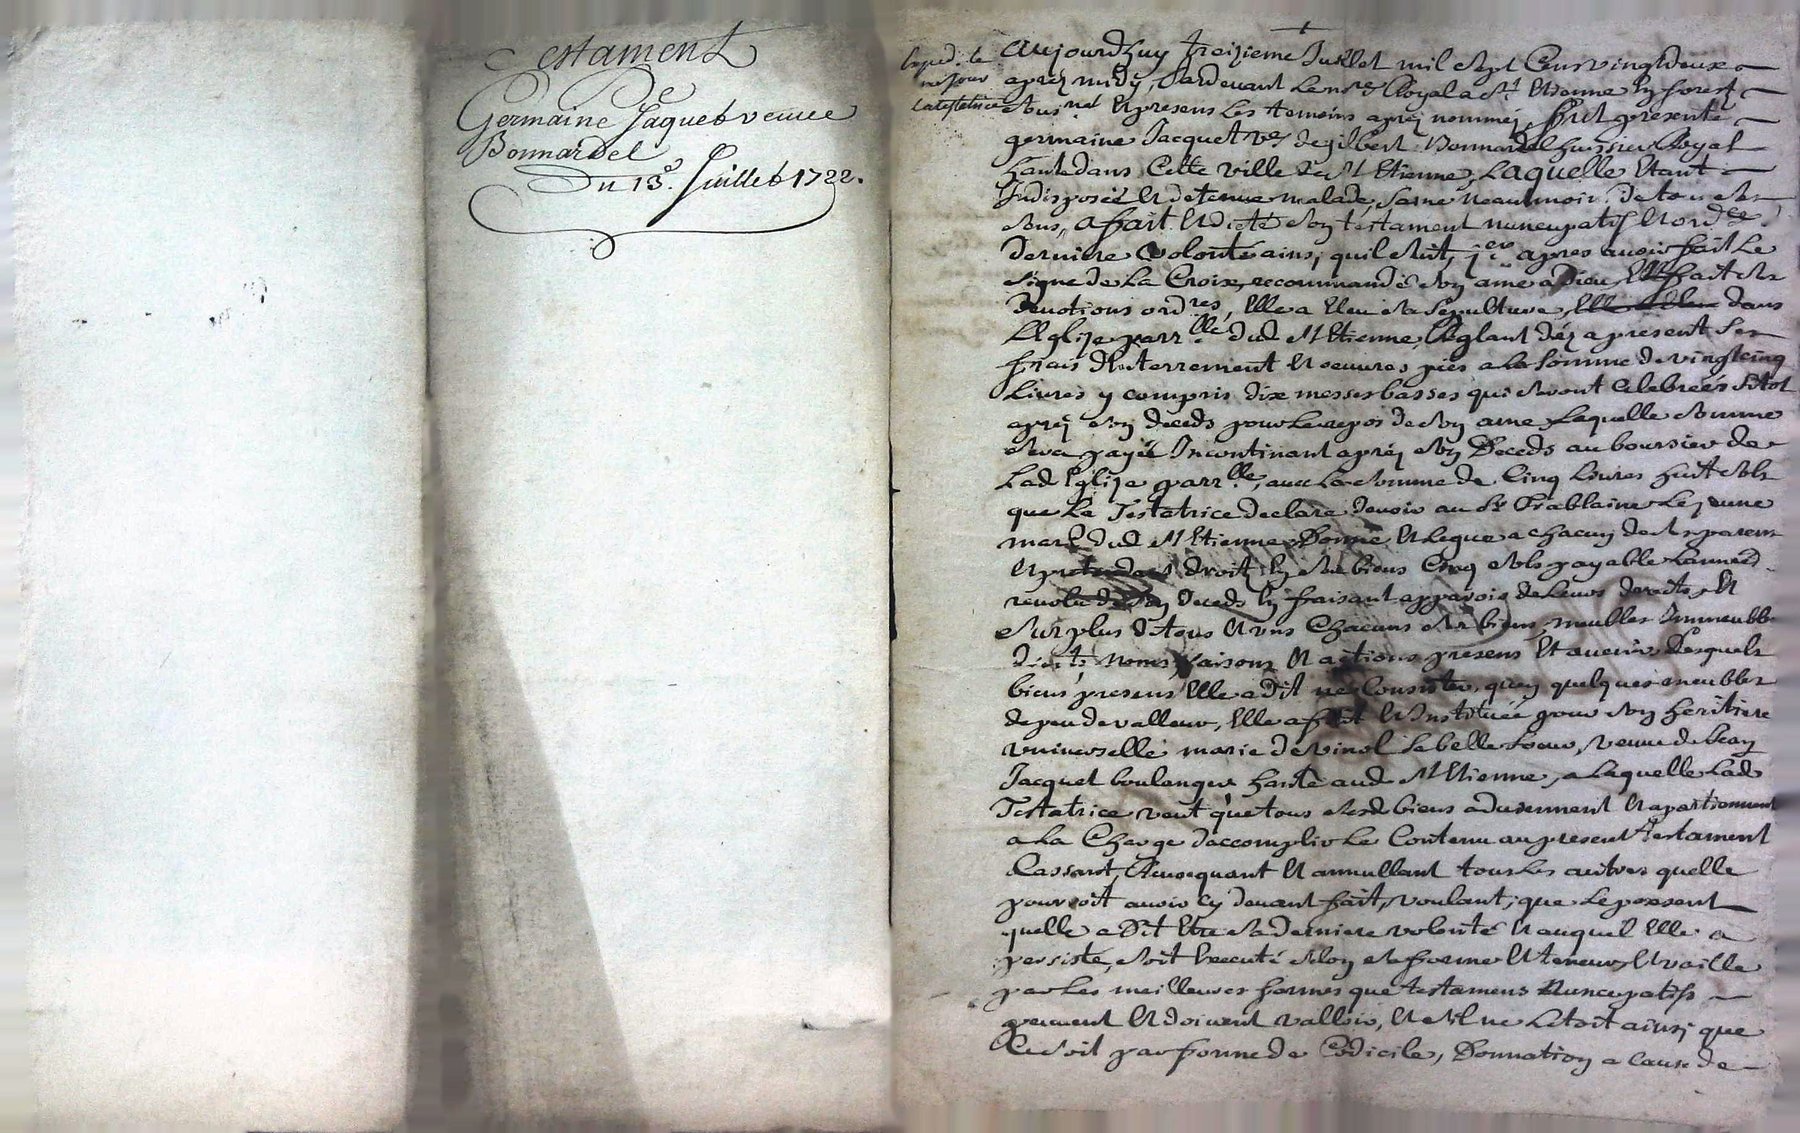 Testament
De
Germaine Jaquet veuve
Bonnardel
Du 13e. Juillet 1722.
Exped. le
mesme jour
la testatrice
Aujourdhuy treizieme Juillet mil sept Cens vingt deux
apres midy, Pardevant le nore Royal a St. Etienne en forest
soussné Et presens les temoins apres nommés, fut presente
germaine Jacquet ve. de gilbert Bonnardel huissier Royal
hante dans Cette ville de St Etienne, Laquelle Etant
Indisposée Et detenue malade, saine neanmoins de tous ses
sens, a fait Et dicté son testament nuncupatif Et ordre
Derniere volonté ainsi quil suit, apres avoir fait Le
signe de La Croix, recommandé son ame a Dieu, Et fait ses
Devotions ordres, Elle a Eleu sa sepulture, dans
LEglize parrlle dud St Etienne, Reglant dés a present ses
frais dEnterrement Et oeuvres pies a La somme de vingt cinq
Livres y compris dix messes basses qui seront Celebrées sitot
apres son deceds pour Le repos de son ame Laquelle somme
sera payée Incontinant apres son Deceds au boursier de
Lad Eglize parrlle, avec La somme de Cinq Livres huit sols
que La Testatrice declare devoir au Sr Le jeune
marchd dud St Etienne Donne Et Legue a chacun de ses parens
Et pretendans droit En ses biens Cinq sols payable Lannée
revolue de son deceds En faisant apparoir de Leurs droits, Et
surplus de tous Et uns Chacuns ses biens, meubles Immeubles
droits, noms, raisons Et actions presens Et avenir Desquels
biens presens Elle a dit ne Consister, quen quelques meubles
de peu de valleur, Elle a fait Et Instituée pour son heritiere
universelle marie devinol sa belle soeur, veuve de Jean
Jacquet boulanger hante aud St Etienne, a Laquelle Lad
Testatrice veut que tous sesd biens adviennent Et apartiennent
a La Charge daccomplir Le Contenu au present testament
Cassant, Revoquant Et annullant tous Les autres quelle
pourroit avoir cy devant fait, voulant, que Le present
quelle a Dit Etre sa derniere volonté Et auquel Elle a
persisté, soit Executé selon sa forme Et teneur, Et vaille
par Les meilleures formes que testamens Nuncupatifs
peuvent Et doivent valloir, Et sil ne Letoit ainsi que
Ce soit par forme de Codicile, Donnation a cause de